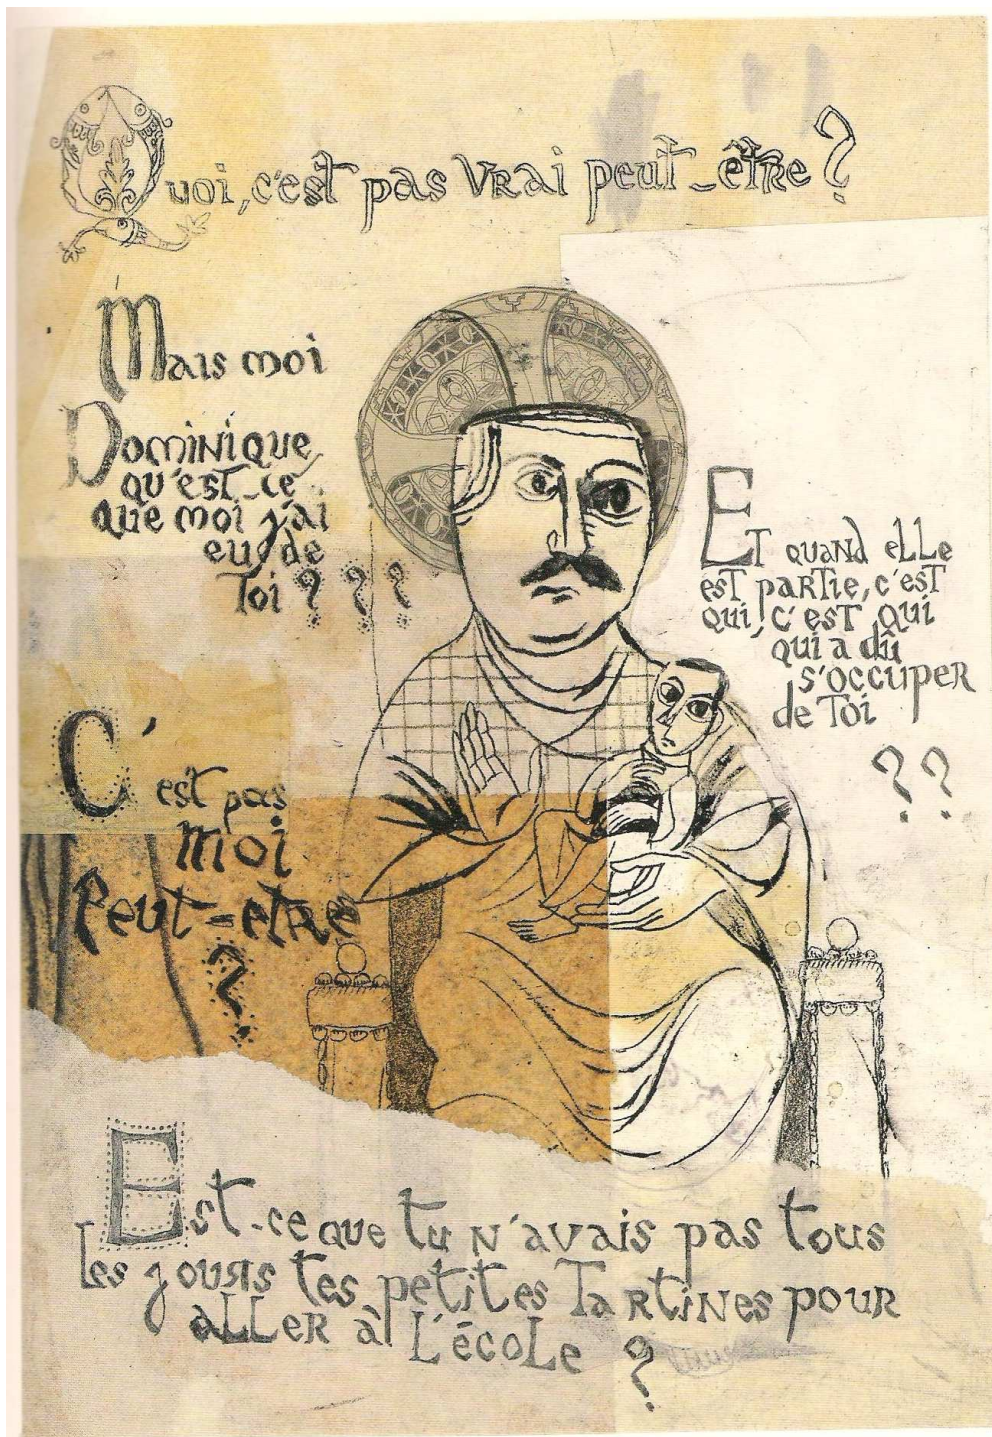 Quoi, c'est pas vrai peut-être ?
Mais moi
Dominique,
qu'est-ce
que moi j'ai
eu de
toi ? ? ?
Et quand elle
est partie, c'est
qui, c'est qui
qui a dû
s'occuper
de toi
? ?
C'est pas
moi
Peut-etre
?
Est-ce que tu n'avais pas tous
les jours tes petites tartines pour
aller à l'école ?